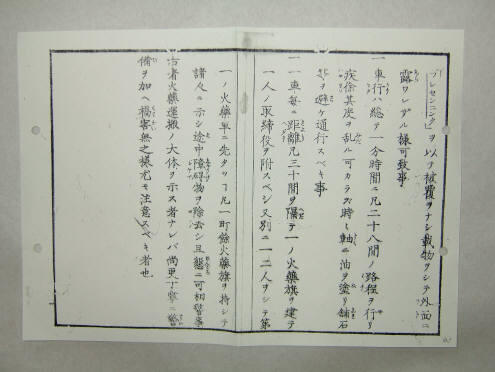 「プレセンニング」ヲ以テ被覆ヲナシ載物ヲシテ外面ニ
露ワレザル様可致事
一車行ハ總テ一分時間ニ凡二十八間ノ路程ヲ行リ
疾徐其度ヲ乱ル可カラズ時々軸ニ油ヲ塗リ舗石
ヲ避ケ通行スベキ事
一一車毎ニ距離凡三十間ヲ隔テ一ノ火藥旗ヲ建テ
一人ノ取締役ヲ附スベシ又別ニ一二人ヲシテ第
一ノ火藥車ニ先タツコ凡一町餘火藥旗ヲ持シテ
諸人ニ示シ途中障碍物ヲ除去シ且懇ニ可相警事
右者火藥運搬ノ大体ヲ示ス者ナレバ尚更丁寧ニ警
備ヲ加ヘ禍害無之様尤モ注意スベキ者也